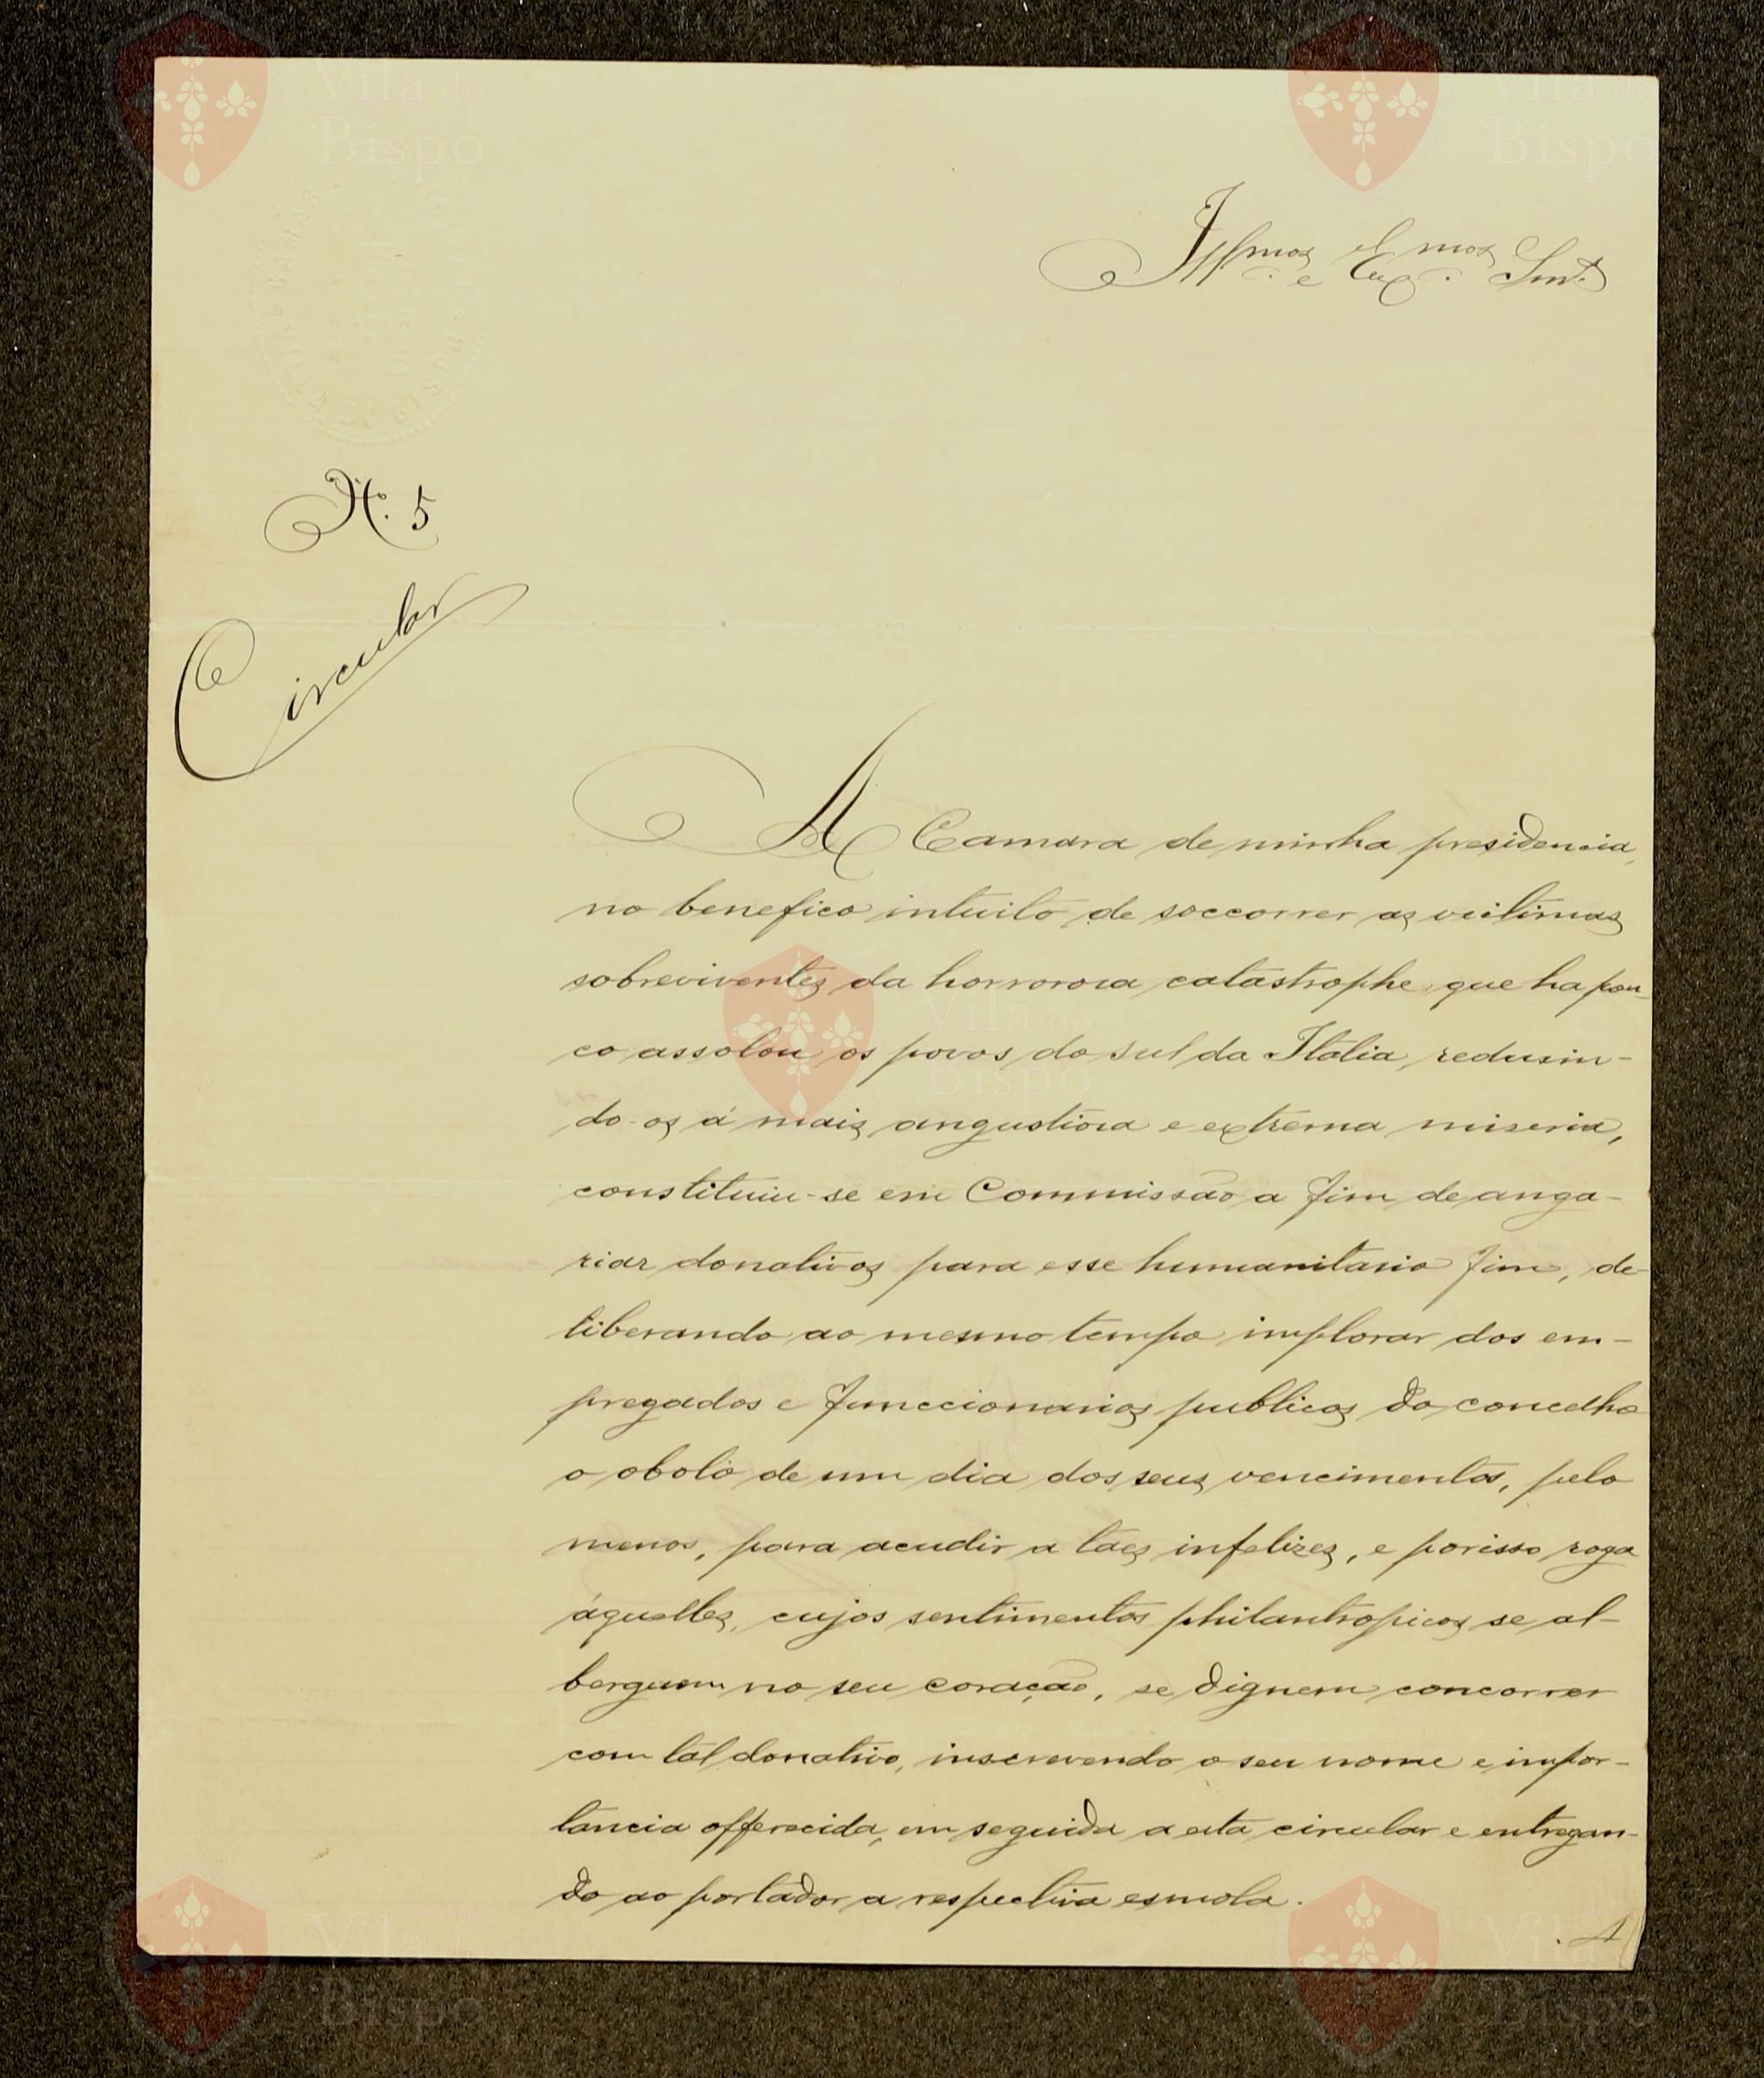 Illmos e Exmos Snrs
Nº 5
Circular
A Camara de minha presidencia,
no benefico intuito de soccorrer as victimas
sobreviventes da horrorosa catastrophe que ha pou-
co assolou os povos do sul da Italia redusin-
do-os á mais angustiosa e extrema miseria,
constituiu-se em Commissão a fim de anga-
riar donativos para esse humanitario fim, de-
liberando ao mesmo tempo implorar dos em-
pregados e funccionarios publicos do concelho
o obolo de um dia dos seus vencimentos, pelo
menos, para acudir a táes infelizes, e porisso roga
áquelles, cujos sentimentos philantropicos se al-
berguem no seu coração, se dignem concorrer
com tal donativo, inscrevendo o seu nome e impor-
tancia offerecida, em seguida a esta circular e entregan-
do ao portador a respectiva esmola.
Vila do Bispo
Vila do Bispo
Vila do Bispo
Vila do Bispo
Vila do Bispo